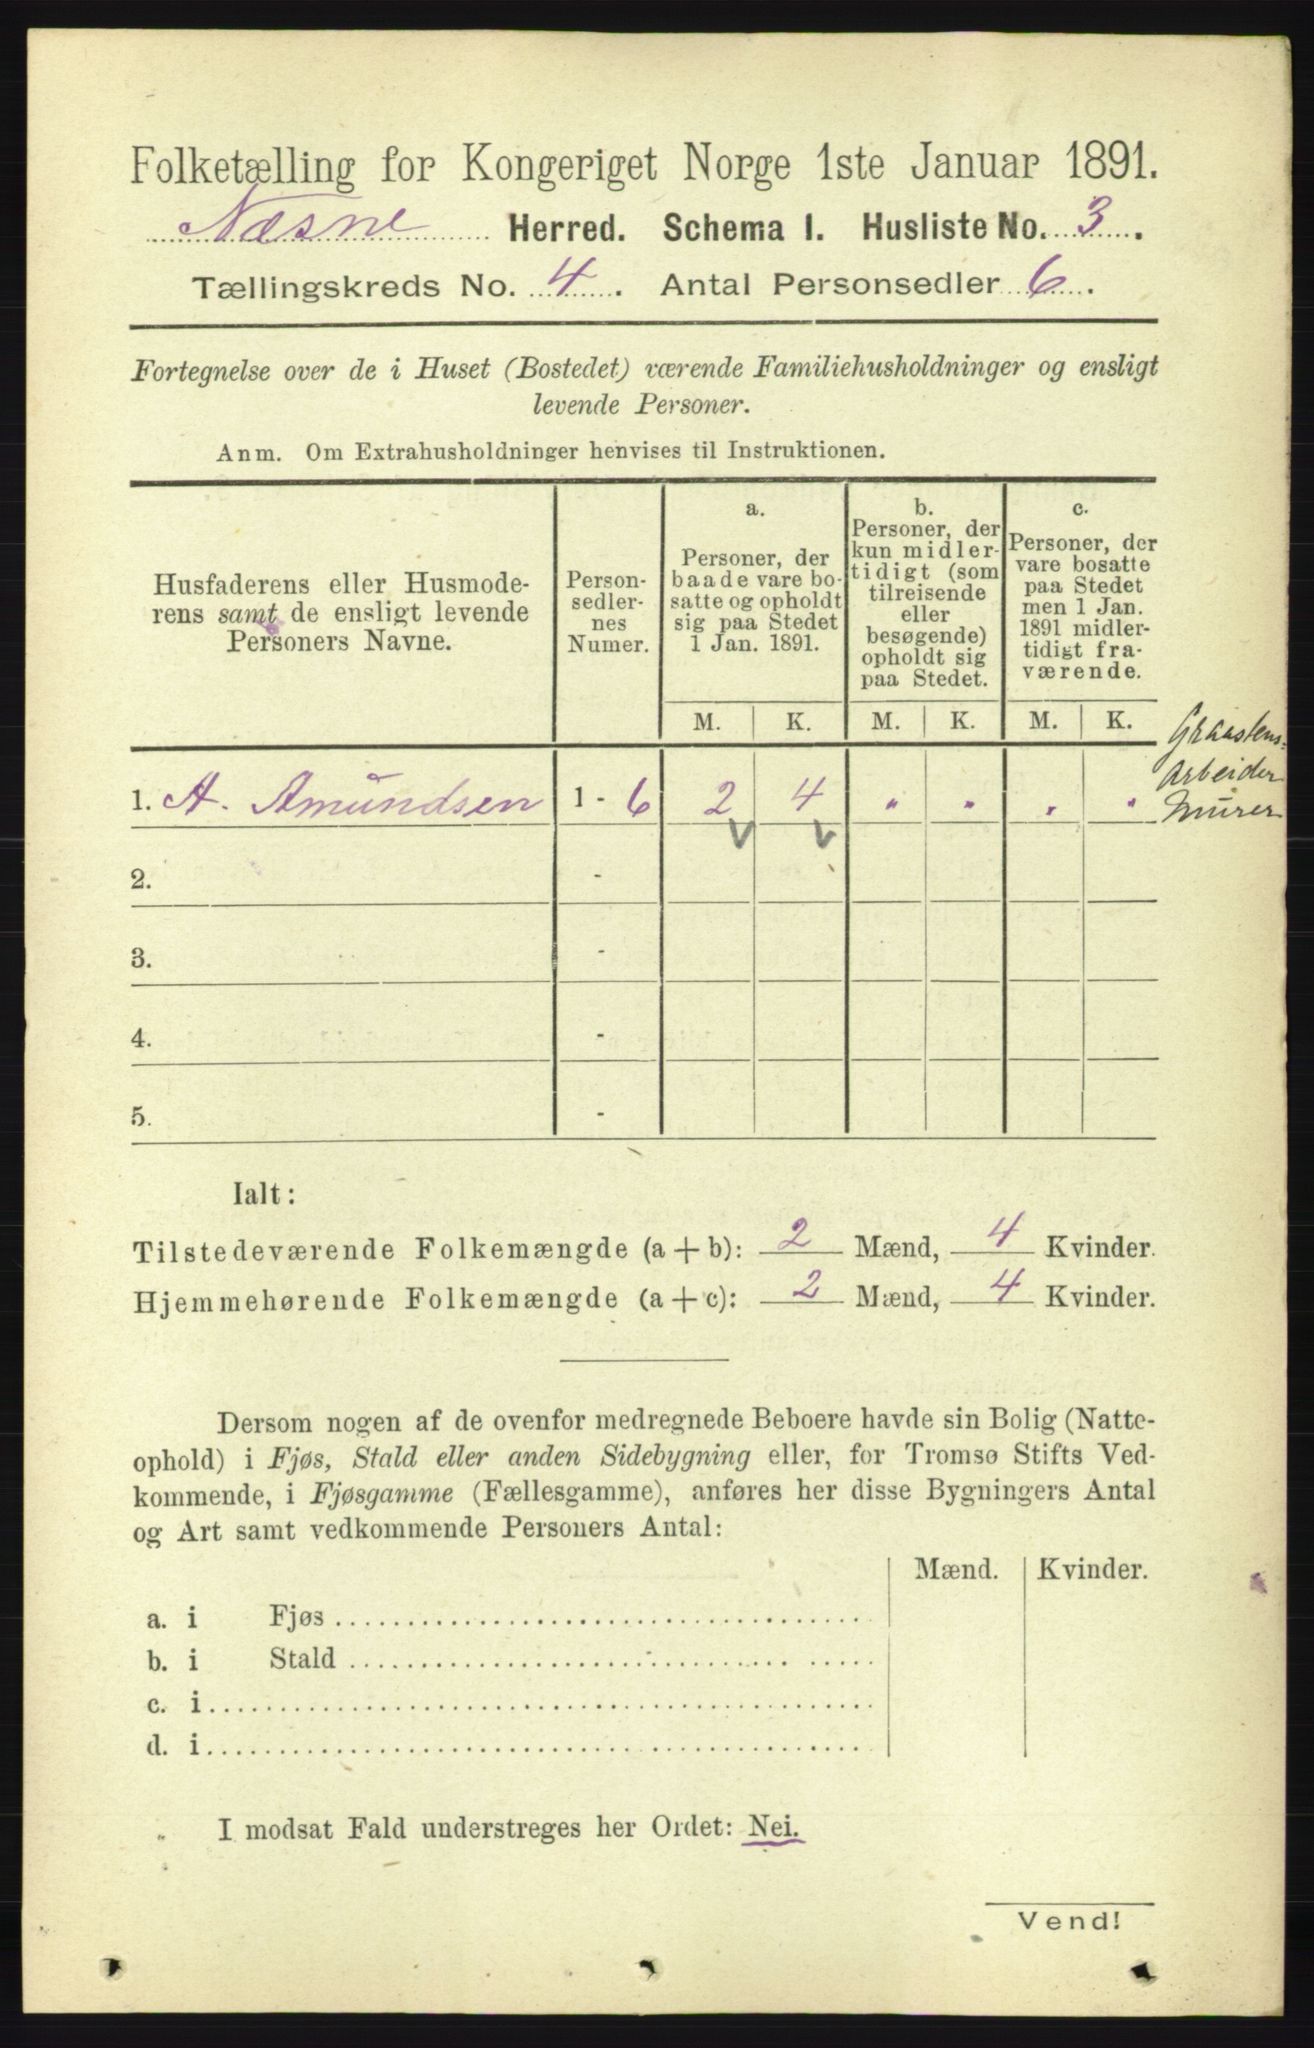 Folketælling for Kongeriget Norge 1ste Januar 1891.
Næsne Herred. Schema I. Husliste No. 3.
Tællingskreds No. 4. Antal Personsedler 6.
Fortegnelse over de i Huset (Bostedet) værende Familiehusholdninger og ensligt
levende Personer.
Anm. Om Extrahusholdninger henvises til Instruktionen.
Husfaderens eller Husmode-
rens samt de ensligt levende
Personers Navne.
Person-
sedler-
nes
Numer.
a.
Personer, der
baade vare bo-
satte og opholdt
sig paa Stedet
1 Jan. 1891.
b.
Personer, der
kun midler-
tidigt (som
tilreisende
eller
besøgende)
opholdt sig
paa Stedet.
c.
Personer, der
vare bosatte
paa Stedet
men 1 Jan.
1891 midler-
tidigt fra-
værende.
M. K. M. K. M. K.
Graastens-
Arbeider
Murer
1. A. Amundsen 1 - 6 2 4 " " " "
2. -
3. -
4. -
5. -
Ialt:
Tilstedeværende Folkemængde (a + b): 2 Mænd, 4 Kvinder.
Hjemmehørende Folkemængde (a + c): 2 Mænd, 4 Kvinder.
Dersom nogen af de ovenfor medregnede Beboere havde sin Bolig (Natte-
ophold) i Fjøs, Stald eller anden Sidebygning eller, for Tromsø Stifts Ved-
kommende, i Fjøsgamme (Fællesgamme), anføres her disse Bygningers Antal
og Art samt vedkommende Personers Antal:
Mænd. Kvinder.
a. i Fjøs
b. i Stald
c. i
d. i
I modsat Fald understreges her Ordet: Nei.
Vend!